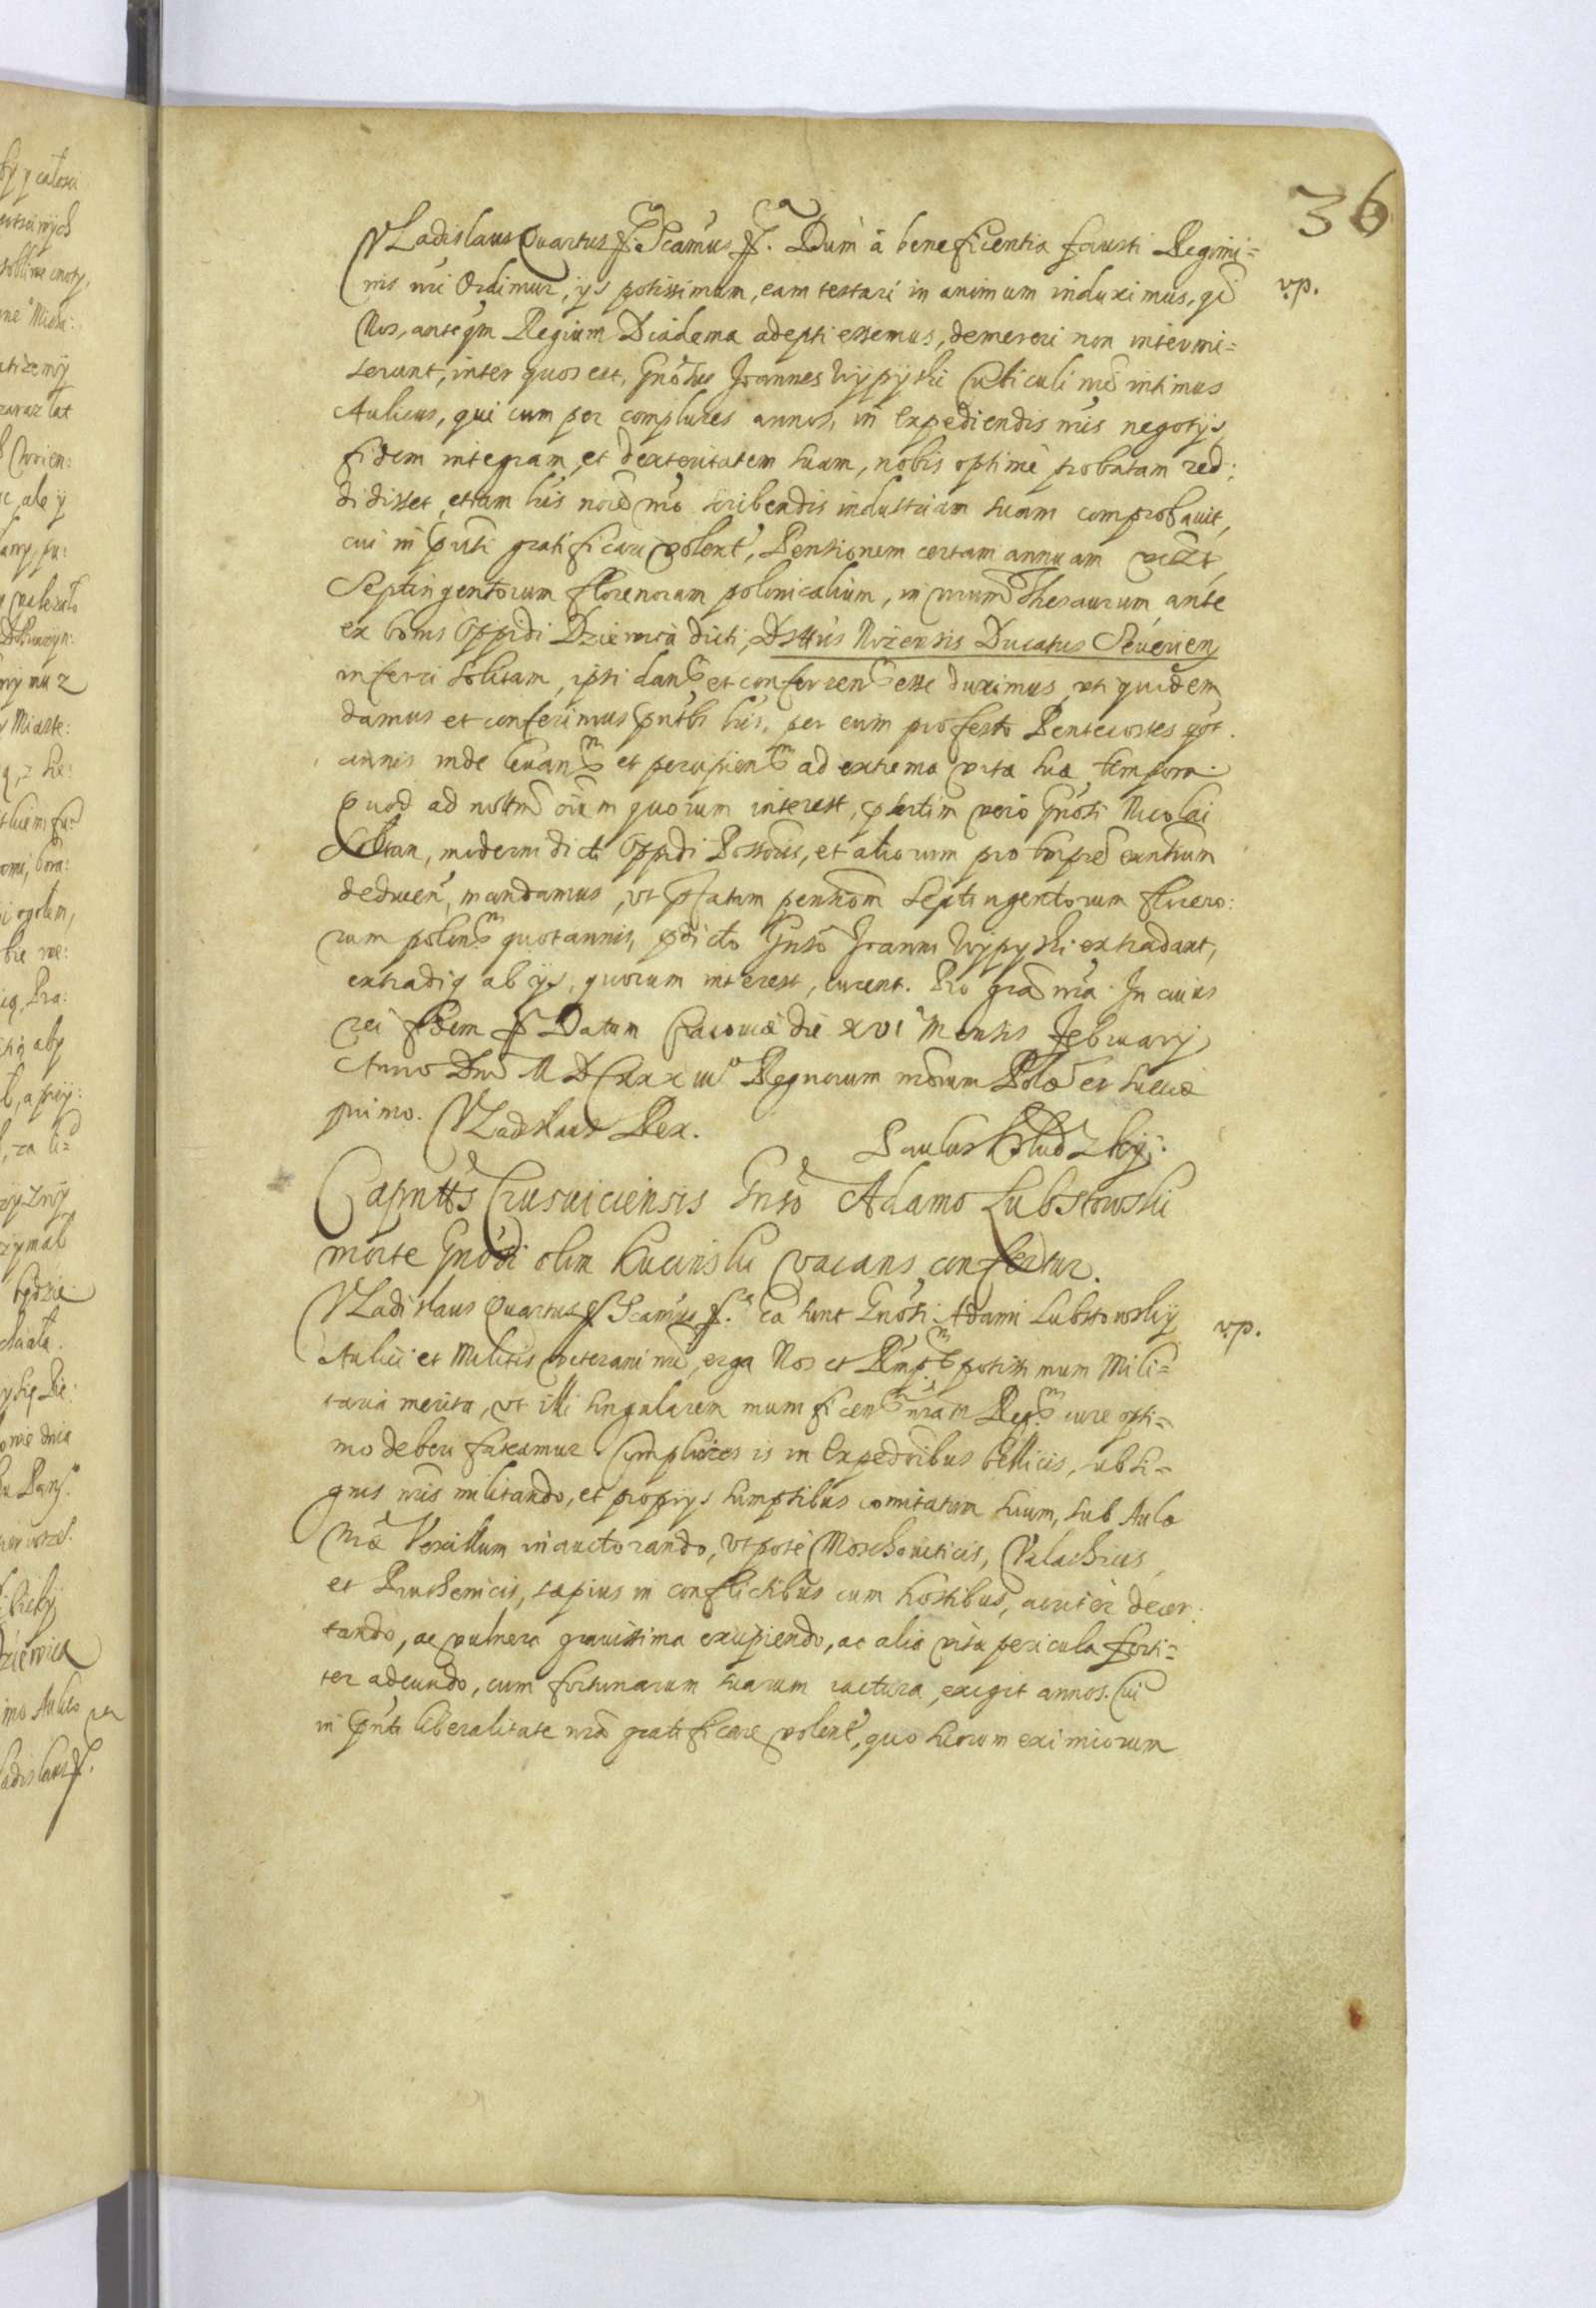 36
VLadislaus Quartus ff. Scamus ff. Dum à beneficentia fausti Regimi=
nis nri Ordimur, ijs potissimum, eam testari in animum induximus, qi
vp.
Nos, anteqm Regium Diadema adepti essemus, demereri non intermi=
serunt, inter quos est, Gnosus Joannes Wypyski Cubiculi nri intimus
Aulicus, qui cum per complures annos, in Expediendis nris negotijs,
fidem integram et dexteritatem suam, nobis optimè probatam red:
didisset, etiam his noie nro scribendis industriam suam comprobauit,
cui in pnti gratificari volent, Pensionem certam annuam vidzt,
Septingentorum florenorum polonicalium, in nrum Thesaurum ante
ex bonis Oppidi Dziewca dicti, Dsttus Ducatus Seuerien
inferri solitam, ipsi dand et conferrend esse duximus, uti quidem
damus et conferimus pntbs his, per eum pro festo Pentecostes qot
annis inde leuand et percipiend ad extrema vitæ suæ tempora.
Quod ad notm oium quorum interest, psertim vero Gnosi Nicolai
moderni dicti Oppidi Possoris, et aliorum pro tempre exntium
deducen, mandamus, vt pfatam pensiom septingentorum florero:
rum polon quotannis, pdicto Gnso Joanni Wypyski extradant,
extradiq ab ijs, quorum interest, curent. Pro gra nra. In cuius
rei fidem ff Datum Cracouiæ die XVI Mensis February
Anno Dni MDCXXXIIIo Regnorum nrorum Polo et Sueciæ
primo. VLadislaus Rex.
Paulus Kłudzky:
Capntts Crusuiciensis Gnso Adamo Lubstowski
morte Gnosi olim Kucinski vacans confertur.
VLadislaus Quartus ff Scamus ff. Ea sunt Gnosi Adami Lubstowskij
vp.
Aulici et Militis veterani nri, erga Nos et Rempb potissimum Mili=
taria merita, vt illi singularem munificen nram Regm iure opti=
mo deberi fateamur. Complures is in Expedonibus bellicis, sub si=
gnis nris militando, et proprijs sumptibus comitatum suum, sub Aulæ
Nræ Vexillum inauctorando, Vtpotè Moschouiticis, Valachicis,
et Pruthenicis, sæpius in conflictibus cum hostibus, acriter decer:
tando, ac vulnera grauissima excipiendo, ac alia vitæ pericula forti=
ter adeundo, cum fortunarum suarum iactura, exegit annos. Cui
in pnti liberalitate nra gratificare volent, quo suorum eximiorum